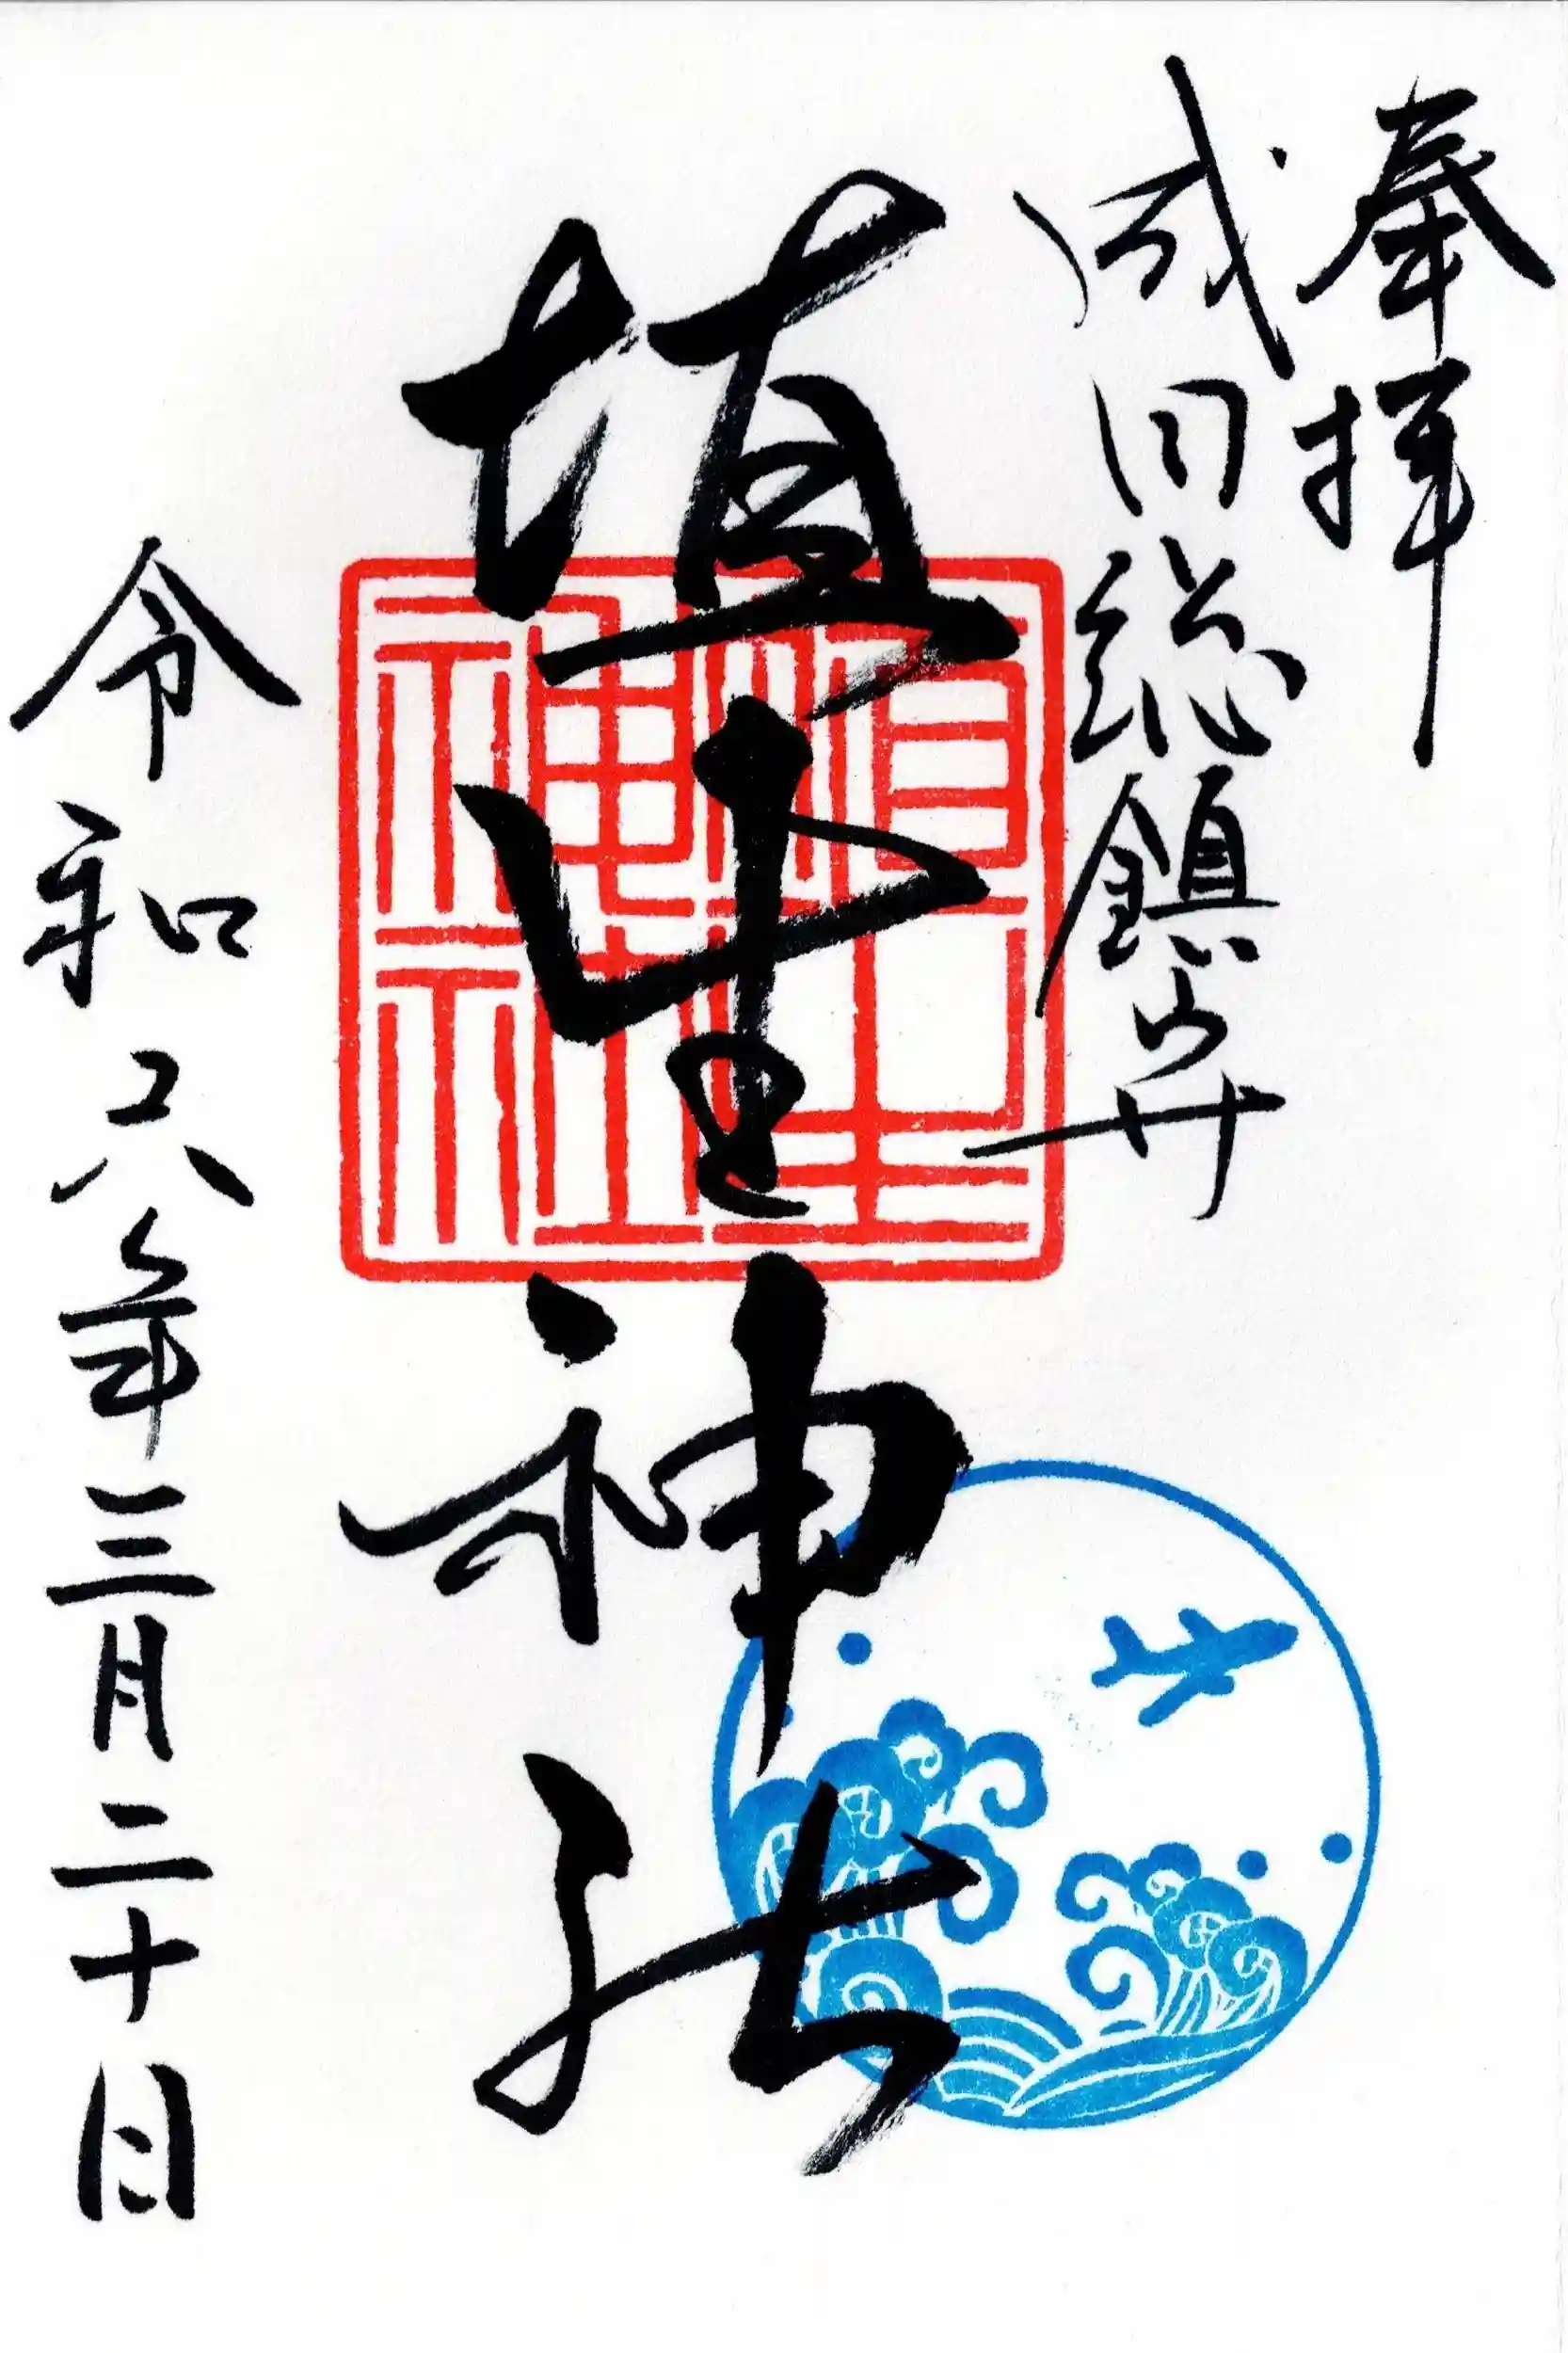 奉拝
成田総鎮守
埴生神社
埴生
神社
令和六年三月二十日